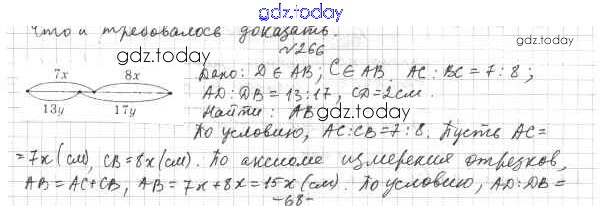 gdz.today
что и требовалось доказать.
gdz.today
№266
7x 8x
13y 17y
Дано: D ∈ AB; C ∈ AB. AC : BC = 7 : 8;
AD : DB = 13 : 17, CD = 2 см.
gdz.today
Найти: AB
По условию, AC : CB = 7 : 8. Пусть AC =
= 7x (см), CB = 8x (см). По аксиоме измерения отрезков,
AB = AC + CB, AB = 7x + 8x = 15x (см). По условию, AD : DB =
-68-
gdz.today